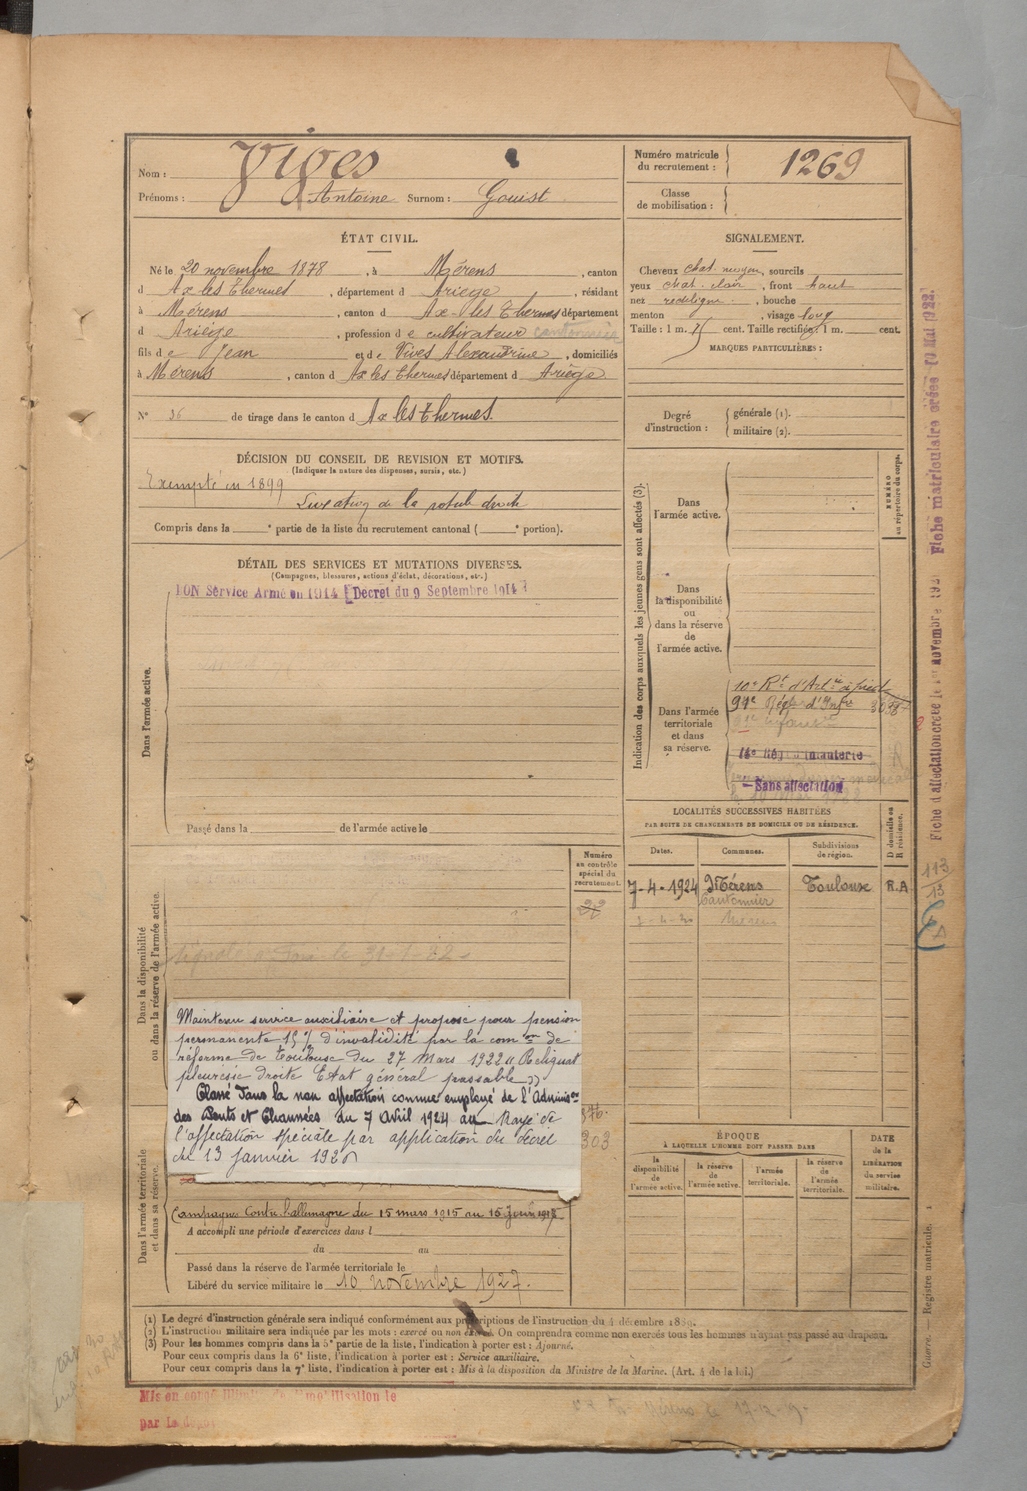 Nom : Vives
Prénoms : Antoine Surnom : Gouist
Numéro matricule du recrutement : 1269
Classe de mobilisation :
ÉTAT CIVIL.
Né le 20 novembre 1878, à Mérens, canton
d Ax les Thermes, département d Ariège, résidant
à Mérens, canton d Ax-les Thermes département
d Ariège, profession d e cultivateur cantonnier
fils d e Jean et d e Vives Alexandrine, domiciliés
à Mérens, canton d Ax les Thermes département d Ariège
N° 36 de tirage dans le canton d Ax les Thermes.
SIGNALEMENT.
Cheveux chat. moyen, sourcils
yeux chat. clair, front haut
nez rectiligne, bouche
menton, visage long
Taille : 1 m. cent. Taille rectifiée : 1 m. cent.
MARQUES PARTICULIÈRES :
Degré d'instruction : générale (1). militaire (2).
DÉCISION DU CONSEIL DE REVISION ET MOTIFS.
(Indiquer la nature des dispenses, sursis, etc.)
Exempté en 1899
Luxation de la rotule droite
Compris dans la e partie de la liste du recrutement cantonal ( e portion).
DÉTAIL DES SERVICES ET MUTATIONS DIVERSES.
(Campagnes, blessures, actions d'éclat, décorations, etc.)
BON Service Armé en 1914 (Decret du 9 Septembre 1914)
Dans l'armée active.
Passé dans la de l'armée active le
Indication des corps auxquels les jeunes gens sont affectés (3).
NUMÉRO au répertoire du corps.
Dans l'armée active.
Dans la disponibilité ou dans la réserve de l'armée active.
Dans l'armée territoriale et dans sa réserve.
10e Rt d'Artie à pied
Sans affectation
LOCALITÉS SUCCESSIVES HABITÉES
PAR SUITE DE CHANGEMENTS DE DOMICILE OU DE RÉSIDENCE.
Dates. Communes. Subdivisions de région. D domicile ou R résidence.
7-4-1924 Mérens Toulouse R.A
Cantonnier
Dans la disponibilité ou dans la réserve de l'armée active.
Numéro au contrôle spécial du recrutement.
Maintenu service auxiliaire et proposé pour pension
permanente 15% d'invalidité par la comon de
réforme de Toulouse du 27 Mars 1922 « Reliquat
pleurésie droite Etat général passable »
Classé dans la non affectation comme employé de l'Adminis on
des Ponts et Chaussées du 7 Avril 1924 au Rayé de
l'affectation spéciale par application du décret
du 13 janvier
303
Dans l'armée territoriale et dans sa réserve.
Campagne Contre l'allemagne du 15 mars 1915 au 15
A accompli une période d'exercices dans l
du au
Passé dans la réserve de l'armée territoriale le
Libéré du service militaire le 10 novembre 1927.
ÉPOQUE
À LAQUELLE L'HOMME DOIT PASSER DANS
la disponibilité de l'armée active. la réserve de l'armée active. l'armée territoriale. la réserve de l'armée territoriale.
DATE de la LIBÉRATION du service militaire.
(1) Le degré d'instruction générale sera indiqué conformément aux prescriptions de l'instruction du 4 décembre 1889.
(2) L'instruction militaire sera indiquée par les mots : exercé ou non exercé. On comprendra comme non exercés tous les hommes n'ayant pas passé au drapeau.
(3) Pour les hommes compris dans la 5e partie de la liste, l'indication à porter est : Ajourné.
Pour ceux compris dans la 6e liste, l'indication à porter est : Service auxiliaire.
Pour ceux compris dans la 7e liste, l'indication à porter est : Mis à la disposition du Ministre de la Marine. (Art. 4 de la loi.)
Guerre. — Registre matricule. 1
Fiche matriculaire créée 10 Mai 1922.
113
13